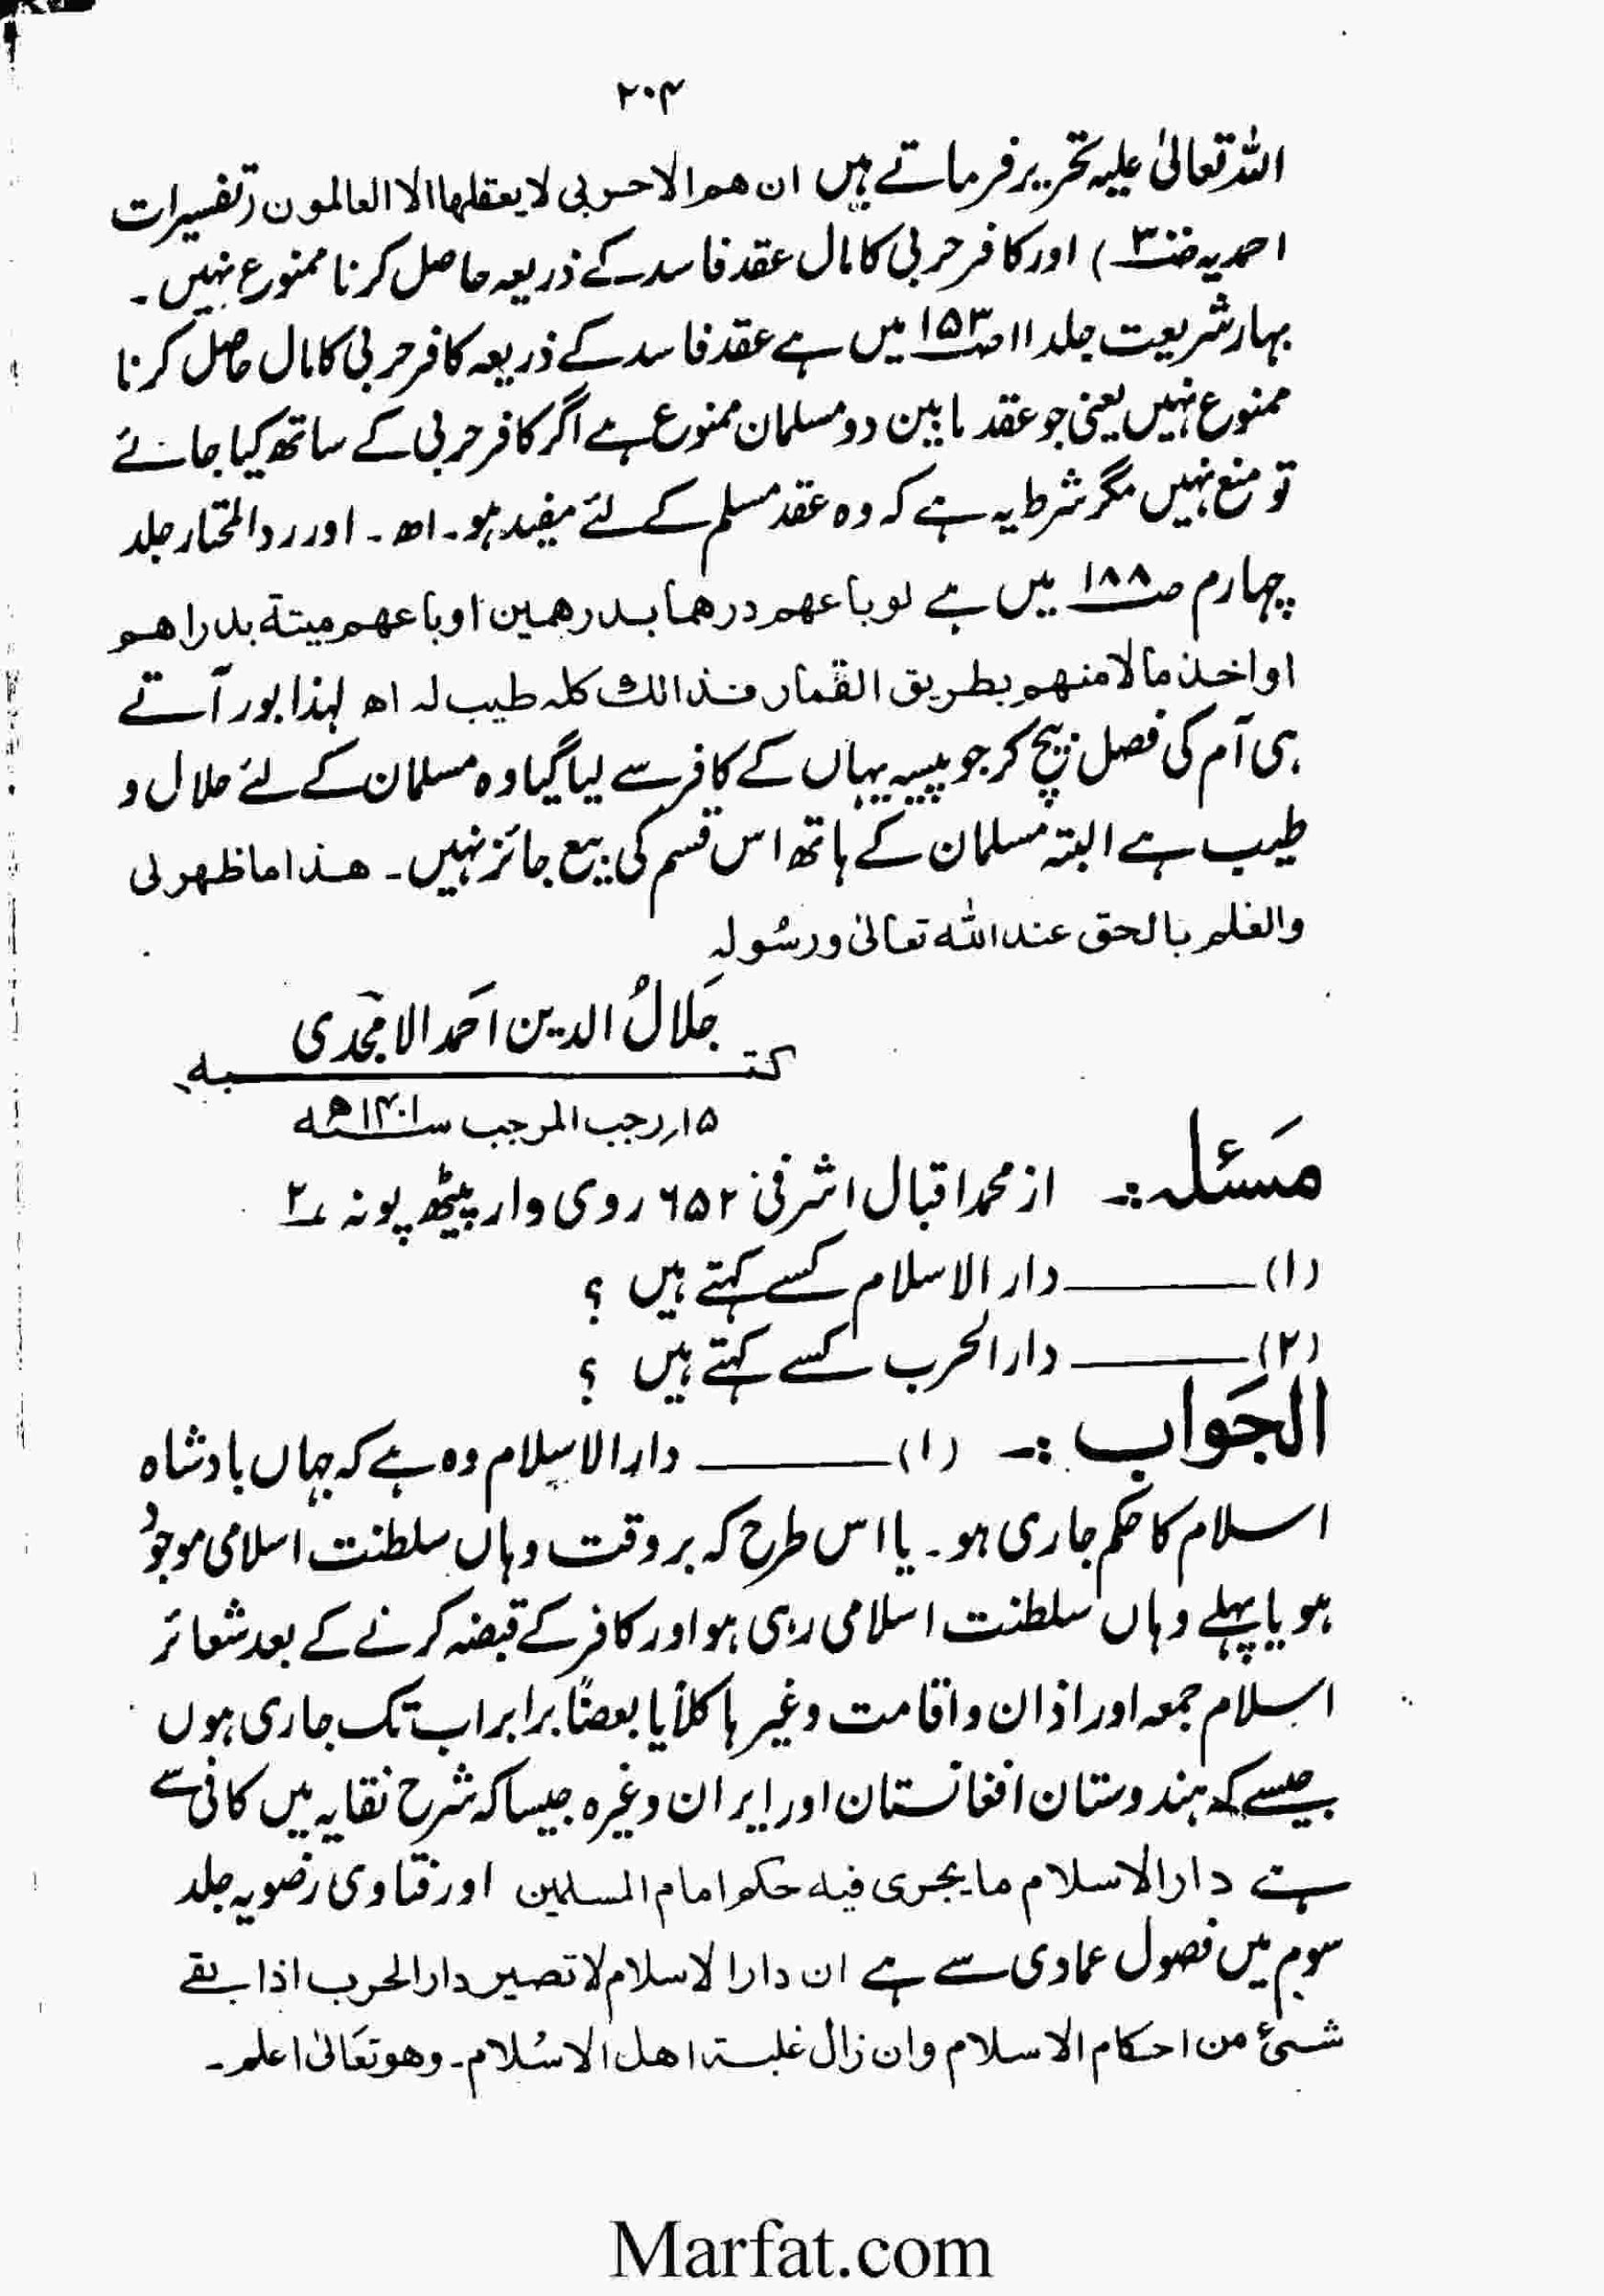 ۲۰۴
اللہ تعالیٰ علیہ تحریر فرماتے ہیں ان ھم الا حربی لا یعقلھا الا العالمون (تفسیرات
احمدیہ ص۳۰۰) اور کافر حربی کا مال عقد فاسد کے ذریعہ حاصل کرنا ممنوع نہیں۔
بہار شریعت جلد ۱۱ ص۱۵۳ میں ہے عقد فاسد کے ذریعہ کافر حربی کا مال حاصل کرنا
ممنوع نہیں یعنی جو عقد مابین دو مسلمان ممنوع ہے اگر کافر حربی کے ساتھ کیا جائے
تو منع نہیں مگر شرط یہ ہے کہ وہ عقد مسلم کے لئے مفید ہو۔ اھ۔ اور ردالمحتار جلد
چہارم ص۱۸۸ میں ہے لو باعھم درھما بدرھمین او باعھم میتة بدراھم
او اخذ مالا منھم بطریق القمار فذالک کلہ طیب لہ اھ لہذا بور آتے
ہی آم کی فصل بیچ کر جو پیسہ یہاں کے کافر سے لیا گیا وہ مسلمان کے لئے حلال و
طیب ہے البتہ مسلمان کے ہاتھ اس قسم کی بیع جائز نہیں۔ ھذا ما ظھر لی
والعلم بالحق عند اللہ تعالیٰ و رسُولہ
جَلالُ الدین احَمد الامجدی
کتبہ
۱۵؍رجب المرجب سنہ ۱۴۰۱ھ
مَسئلہ:۔ از محمد اقبال اشرفی ۶۵۲ روی وار پیٹھ پونہ ۲
(۱) ــــــــ دارالاسلام کسے کہتے ہیں ؟
(۲) ــــــــ دارالحرب کسے کہتے ہیں ؟
الجَواب:۔ (۱) ــــــــ دارالاسلام وہ ہے کہ جہاں بادشاہ
اسلام کا حکم جاری ہو۔ یا اس طرح کہ بر وقت وہاں سلطنت اسلامی موجودُ
ہو یا پہلے وہاں سلطنت اسلامی رہی ہو اور کافر کے قبضہ کرنے کے بعد شعائر
اسلام جمعہ اور اذان و اقامت وغیرہا کلاً یا بعضاً برابر اب تک جاری ہوں
جیسے کہ ہندوستان افغانستان اور ایران وغیرہ جیسا کہ شرح نقایہ میں کافی سے
ہے دارالاسلام ما یجری فیہ حکم امام المسلمین اور فتاوی رضویہ جلد
سوم میں فصول عمادی سے ہے ان دارالاسلام لا تصیر دارالحرب اذا بقے
شیئ من احکام الاسلام وان زال غلبۃ اھل الاسُلام۔ وھو تعَالیٰ اعلم۔
Marfat.com